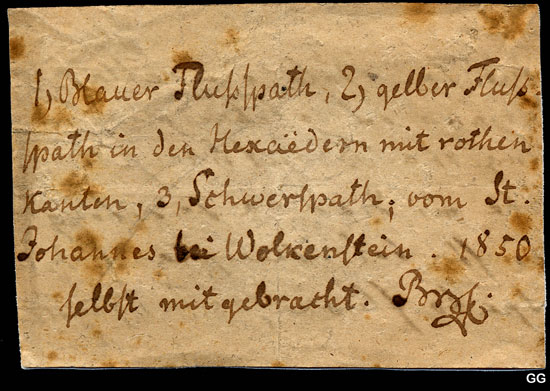 1, Blauer Flußspath, 2, gelber Fluß-
spath in den Hexaëdern mit rothen
Kanten, 3, Schwerspath; vom St.
Johannes bei Wolkenstein. 1850
selbst mitgebracht.
GG